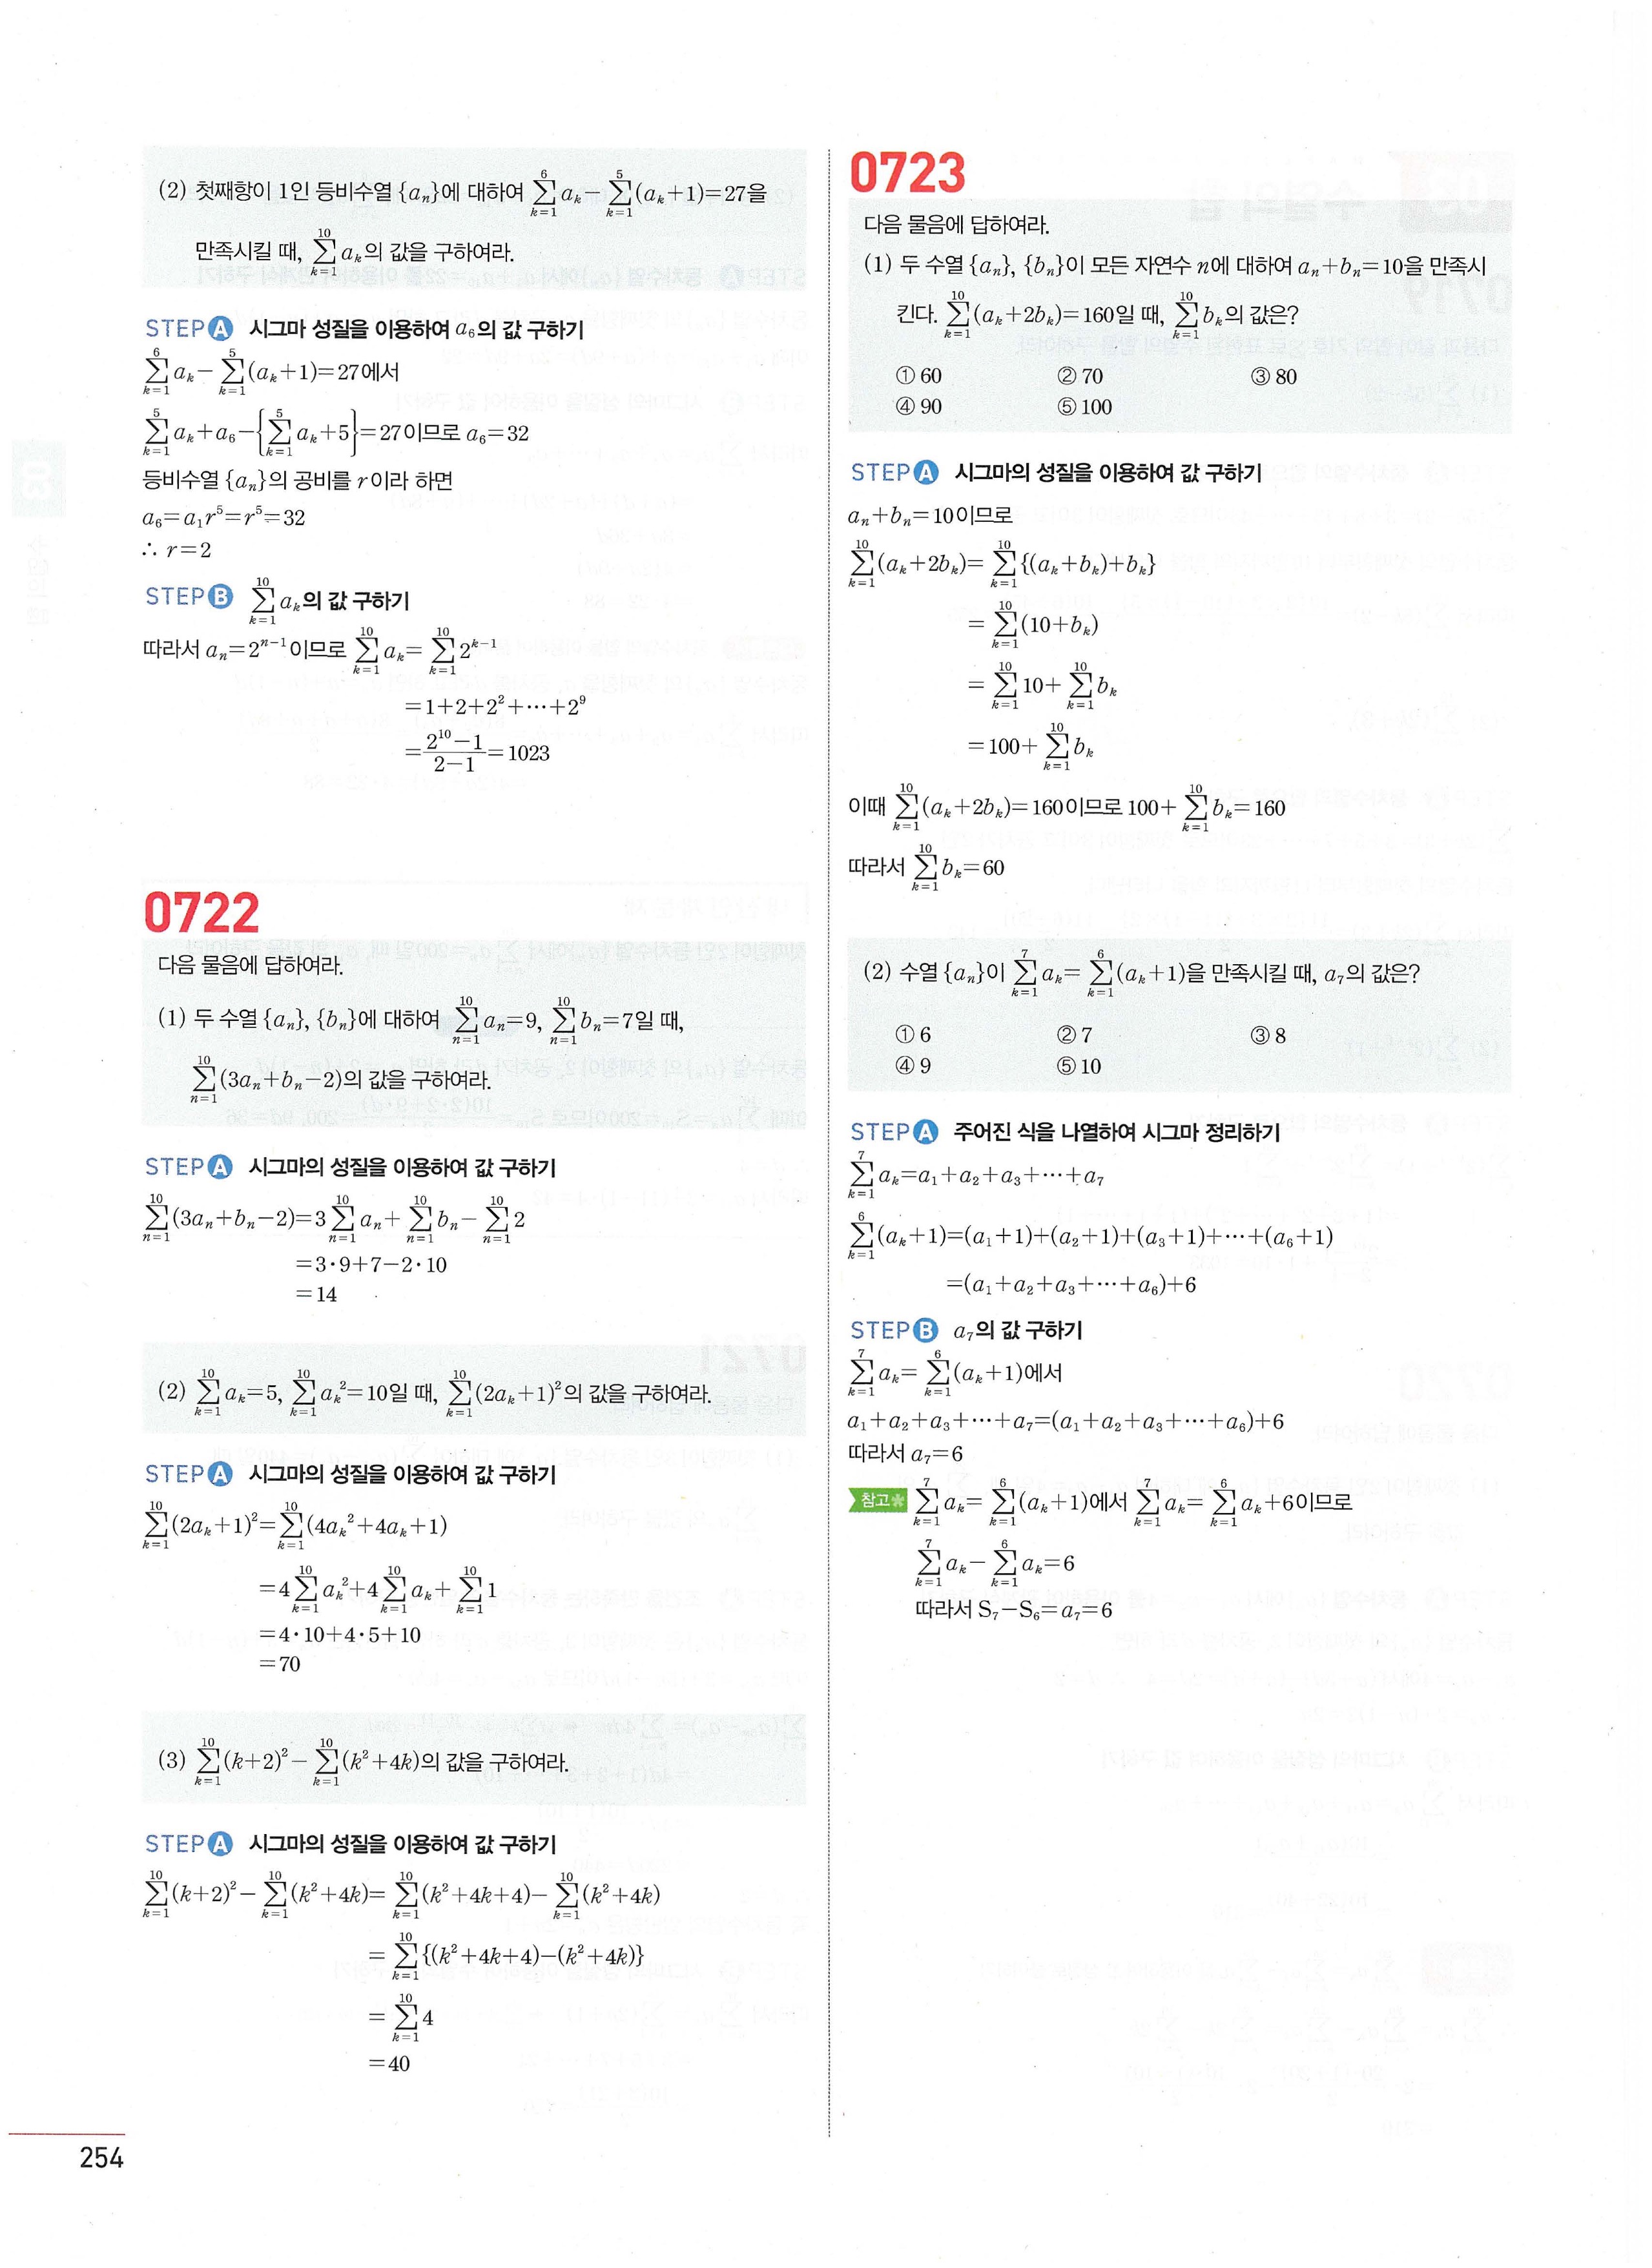 (2) 첫째항이 1인 등비수열 {aₙ}에 대하여 $\sum_{k=1}^{6} a_k - \sum_{k=1}^{5}(a_k+1)=27$을
만족시킬 때, $\sum_{k=1}^{10} a_k$의 값을 구하여라.
STEP A 시그마 성질을 이용하여 $a_6$의 값 구하기
$\sum_{k=1}^{6} a_k - \sum_{k=1}^{5}(a_k+1)=27$에서
$\sum_{k=1}^{5} a_k + a_6 - \left\{\sum_{k=1}^{5} a_k+5\right\}=27$이므로 $a_6=32$
등비수열 {aₙ}의 공비를 r이라 하면
$a_6=a_1r^5=r^5=32$
∴ r=2
STEP B $\sum_{k=1}^{10} a_k$의 값 구하기
따라서 $a_n=2^{n-1}$이므로 $\sum_{k=1}^{10} a_k=\sum_{k=1}^{10} 2^{k-1}$
$=1+2+2^2+\cdots+2^9$
$=\frac{2^{10}-1}{2-1}=1023$
0722
다음 물음에 답하여라.
(1) 두 수열 {aₙ}, {bₙ}에 대하여 $\sum_{n=1}^{10} a_n=9$, $\sum_{n=1}^{10} b_n=7$일 때,
$\sum_{n=1}^{10}(3a_n+b_n-2)$의 값을 구하여라.
STEP A 시그마의 성질을 이용하여 값 구하기
$\sum_{n=1}^{10}(3a_n+b_n-2)=3\sum_{n=1}^{10} a_n+\sum_{n=1}^{10} b_n-\sum_{n=1}^{10} 2$
$=3\cdot9+7-2\cdot10$
=14
(2) $\sum_{k=1}^{10} a_k=5$, $\sum_{k=1}^{10} a_k^2=10$일 때, $\sum_{k=1}^{10}(2a_k+1)^2$의 값을 구하여라.
STEP A 시그마의 성질을 이용하여 값 구하기
$\sum_{k=1}^{10}(2a_k+1)^2=\sum_{k=1}^{10}(4a_k^2+4a_k+1)$
$=4\sum_{k=1}^{10} a_k^2+4\sum_{k=1}^{10} a_k+\sum_{k=1}^{10} 1$
$=4\cdot10+4\cdot5+10$
=70
(3) $\sum_{k=1}^{10}(k+2)^2-\sum_{k=1}^{10}(k^2+4k)$의 값을 구하여라.
STEP A 시그마의 성질을 이용하여 값 구하기
$\sum_{k=1}^{10}(k+2)^2-\sum_{k=1}^{10}(k^2+4k)=\sum_{k=1}^{10}(k^2+4k+4)-\sum_{k=1}^{10}(k^2+4k)$
$=\sum_{k=1}^{10}\{(k^2+4k+4)-(k^2+4k)\}$
$=\sum_{k=1}^{10} 4$
=40
254
0723
다음 물음에 답하여라.
(1) 두 수열 {aₙ}, {bₙ}이 모든 자연수 n에 대하여 $a_n+b_n=10$을 만족시
킨다. $\sum_{k=1}^{10}(a_k+2b_k)=160$일 때, $\sum_{k=1}^{10} b_k$의 값은?
① 60 ② 70 ③ 80
④ 90 ⑤ 100
STEP A 시그마의 성질을 이용하여 값 구하기
$a_n+b_n=10$이므로
$\sum_{k=1}^{10}(a_k+2b_k)=\sum_{k=1}^{10}\{(a_k+b_k)+b_k\}$
$=\sum_{k=1}^{10}(10+b_k)$
$=\sum_{k=1}^{10} 10+\sum_{k=1}^{10} b_k$
$=100+\sum_{k=1}^{10} b_k$
이때 $\sum_{k=1}^{10}(a_k+2b_k)=160$이므로 $100+\sum_{k=1}^{10} b_k=160$
따라서 $\sum_{k=1}^{10} b_k=60$
(2) 수열 {aₙ}이 $\sum_{k=1}^{7} a_k=\sum_{k=1}^{6}(a_k+1)$을 만족시킬 때, $a_7$의 값은?
① 6 ② 7 ③ 8
④ 9 ⑤ 10
STEP A 주어진 식을 나열하여 시그마 정리하기
$\sum_{k=1}^{7} a_k=a_1+a_2+a_3+\cdots+a_7$
$\sum_{k=1}^{6}(a_k+1)=(a_1+1)+(a_2+1)+(a_3+1)+\cdots+(a_6+1)$
$=(a_1+a_2+a_3+\cdots+a_6)+6$
STEP B $a_7$의 값 구하기
$\sum_{k=1}^{7} a_k=\sum_{k=1}^{6}(a_k+1)$에서
$a_1+a_2+a_3+\cdots+a_7=(a_1+a_2+a_3+\cdots+a_6)+6$
따라서 $a_7=6$
참고 $\sum_{k=1}^{7} a_k=\sum_{k=1}^{6}(a_k+1)$에서 $\sum_{k=1}^{7} a_k=\sum_{k=1}^{6} a_k+6$이므로
$\sum_{k=1}^{7} a_k-\sum_{k=1}^{6} a_k=6$
따라서 $S_7-S_6=a_7=6$